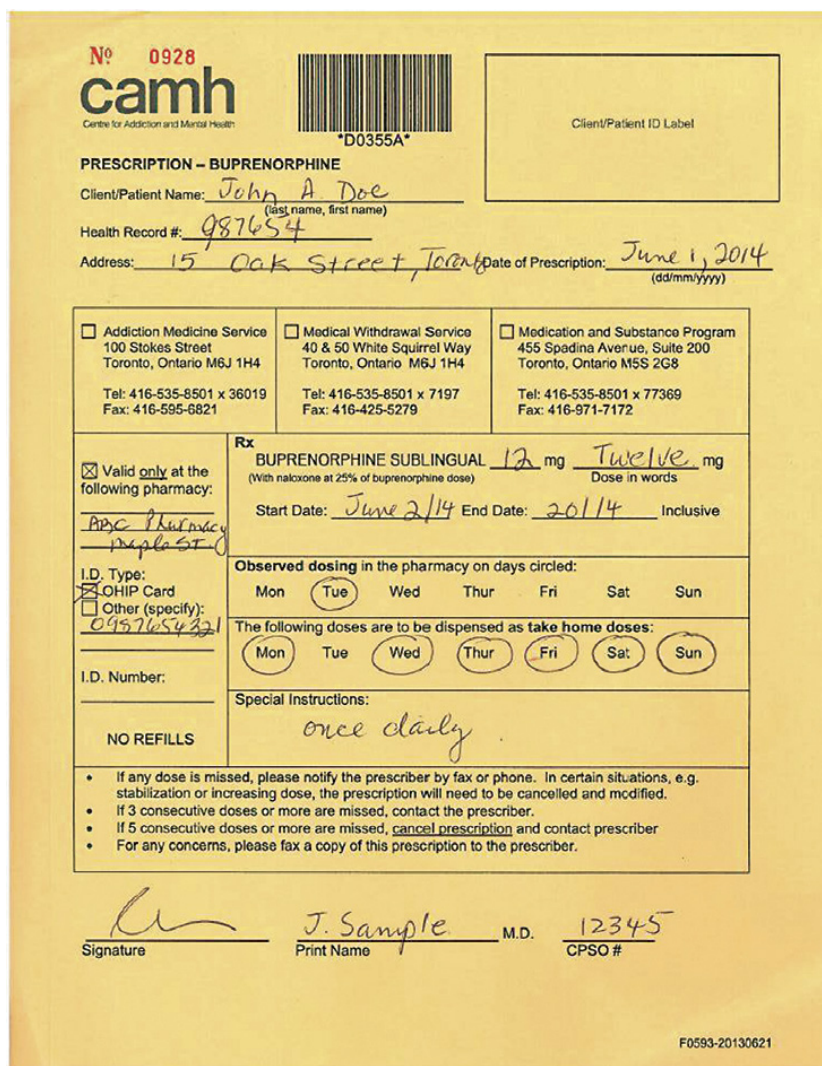 Nº 0928
camh
Centre for Addiction and Mental Health
*D0355A*
Client/Patient ID Label
PRESCRIPTION – BUPRENORPHINE
Client/Patient Name: John A. Doe
(last name, first name)
Health Record #: 987654
Address: 15 Oak Street, Toronto Date of Prescription: June 1, 2014
(dd/mm/yyyy)
Addiction Medicine Service
100 Stokes Street
Toronto, Ontario M6J 1H4
Tel: 416-535-8501 x 36019
Fax: 416-595-6821
Medical Withdrawal Service
40 & 50 White Squirrel Way
Toronto, Ontario M6J 1H4
Tel: 416-535-8501 x 7197
Fax: 416-425-5279
Medication and Substance Program
455 Spadina Avenue, Suite 200
Toronto, Ontario M5S 2G8
Tel: 416-535-8501 x 77369
Fax: 416-971-7172
Valid only at the
following pharmacy:
ABC Pharmacy
Maple St.
I.D. Type:
OHIP Card
Other (specify):
0987654321
I.D. Number:
NO REFILLS
Rx
BUPRENORPHINE SUBLINGUAL 12 mg Twelve mg
(With naloxone at 25% of buprenorphine dose) Dose in words
Start Date: June 2/14 End Date: 20/14 Inclusive
Observed dosing in the pharmacy on days circled:
Mon Tue Wed Thur Fri Sat Sun
The following doses are to be dispensed as take home doses:
Mon Tue Wed Thur Fri Sat Sun
Special Instructions:
once daily.
• If any dose is missed, please notify the prescriber by fax or phone. In certain situations, e.g.
stabilization or increasing dose, the prescription will need to be cancelled and modified.
• If 3 consecutive doses or more are missed, contact the prescriber.
• If 5 consecutive doses or more are missed, cancel prescription and contact prescriber
• For any concerns, please fax a copy of this prescription to the prescriber.
J. Sample M.D. 12345
Signature Print Name CPSO #
F0593-20130621